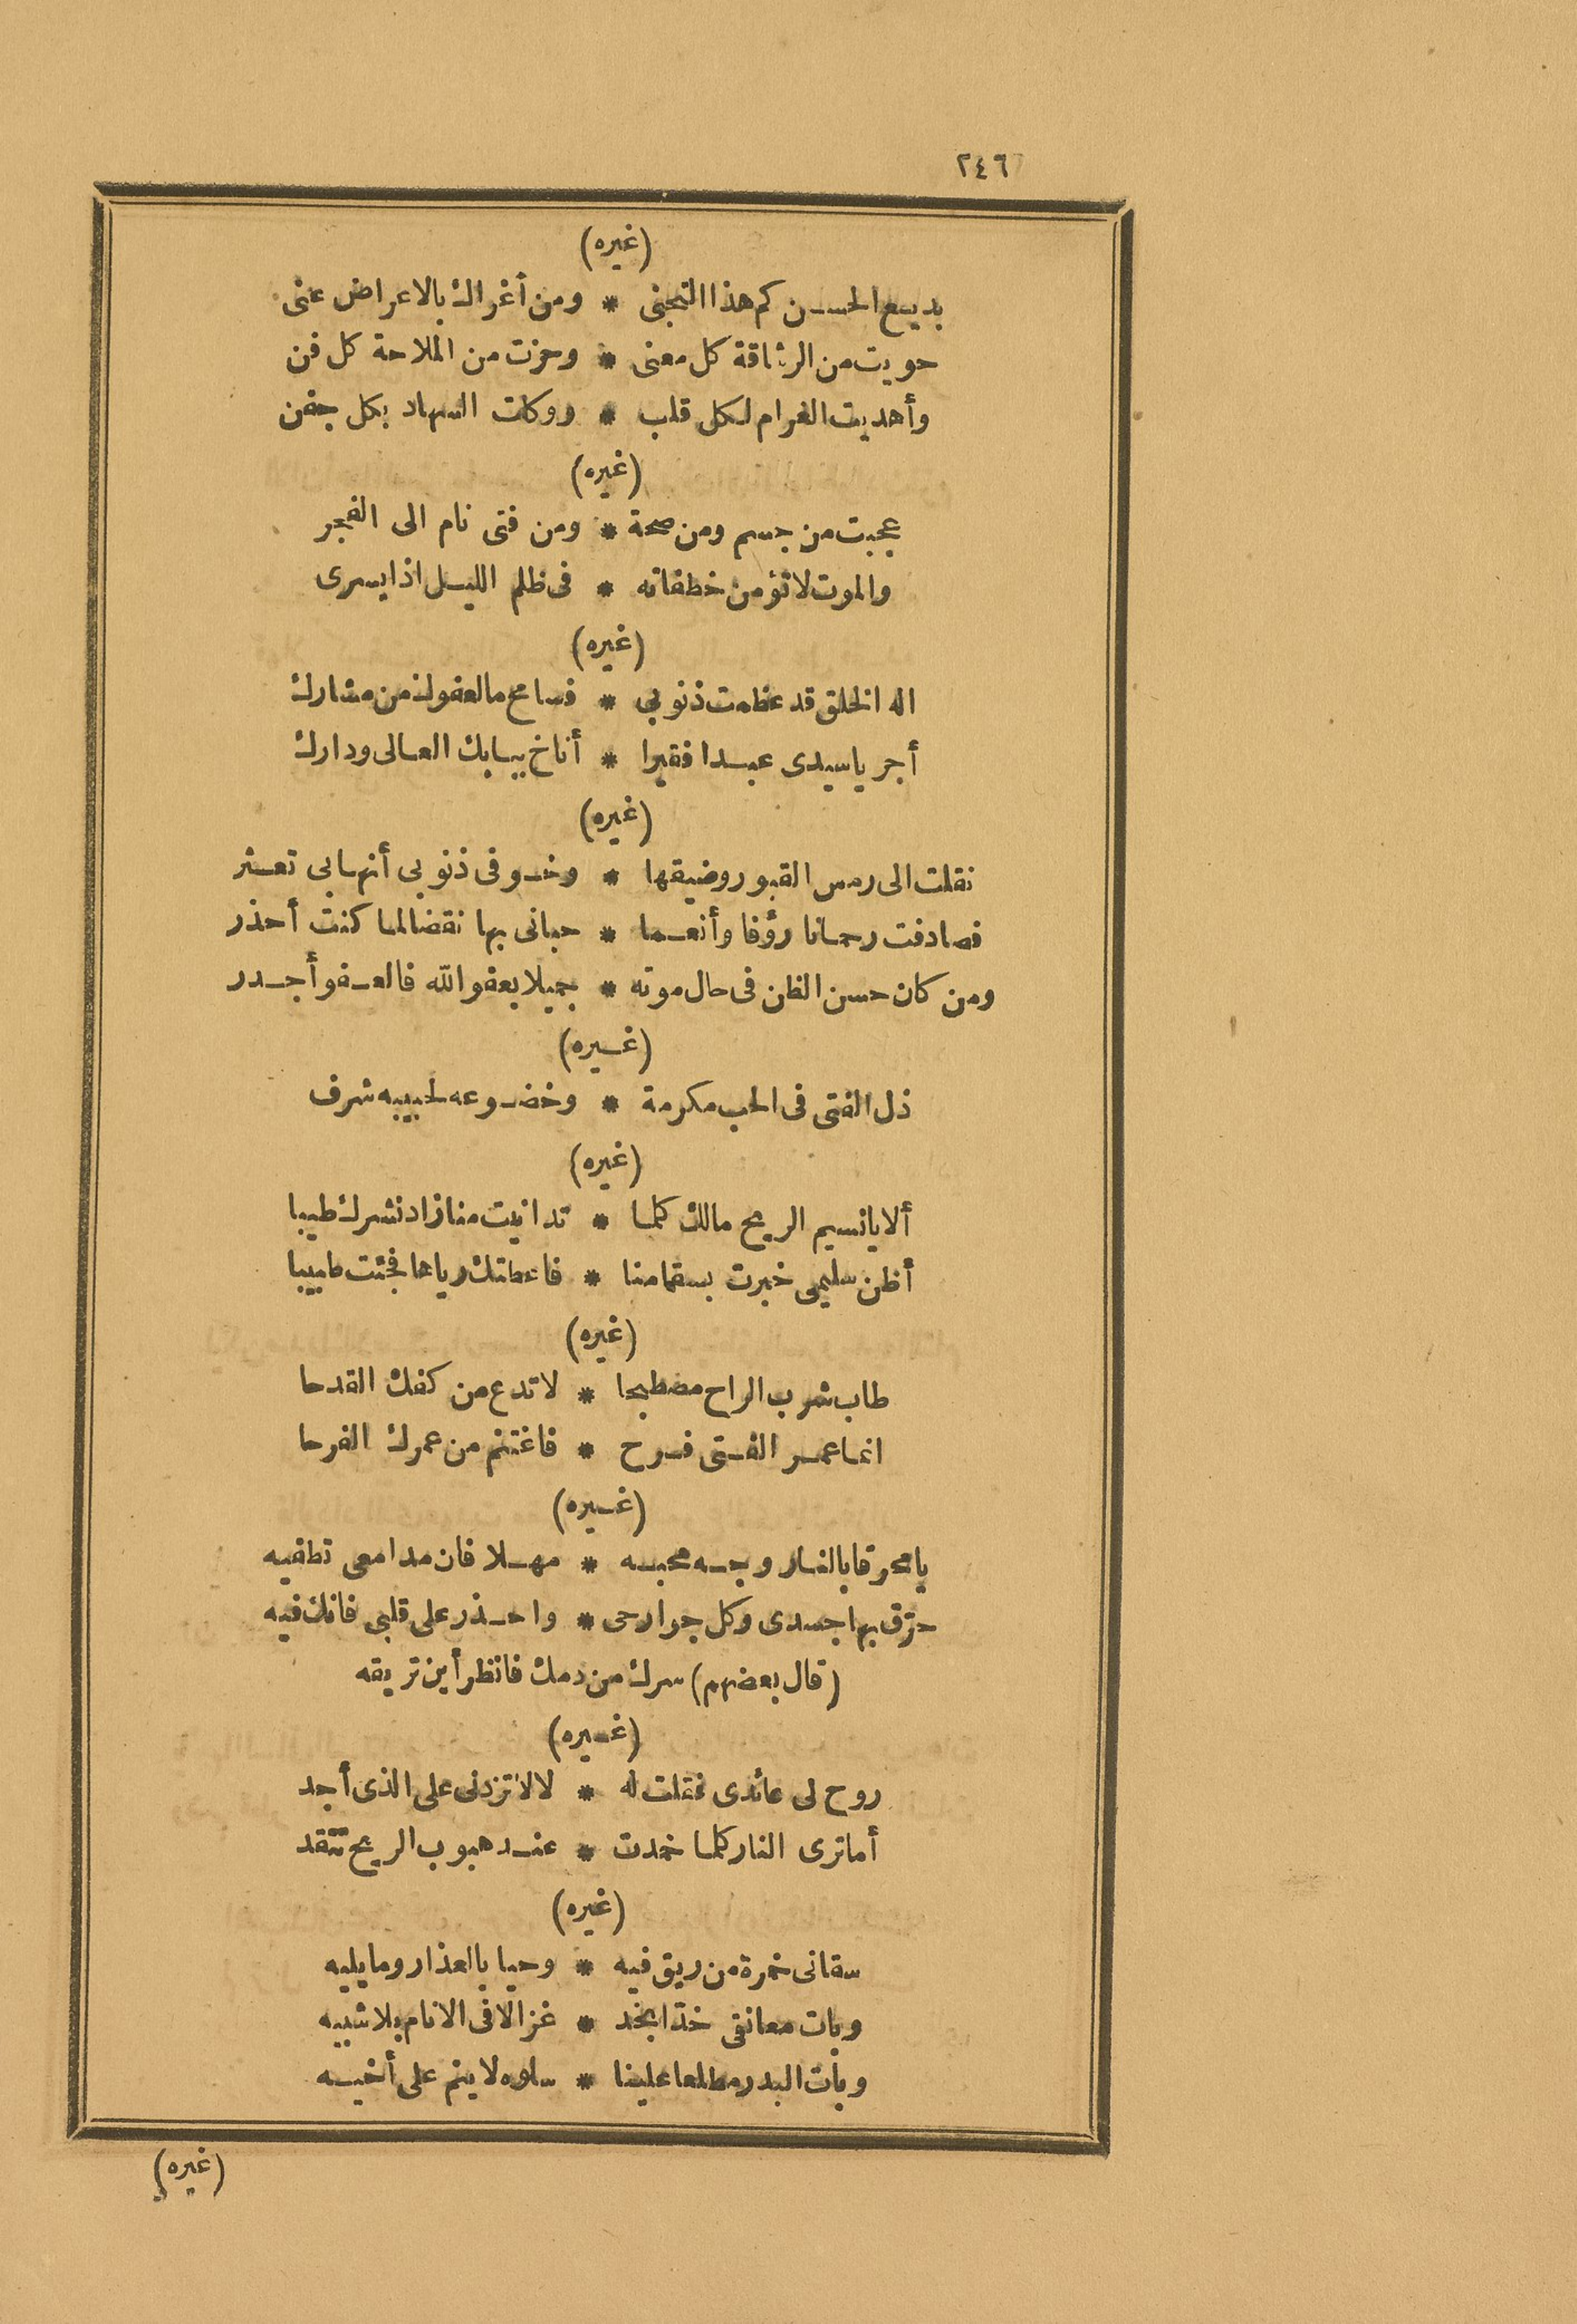 ٢٤٦
(غيره)
بديع الحسن كم هذا التجنى * ومن أغراك بالاعراض عنى
حويت من الرشاقة كل معنى * وحزت من الملاحة كل فن
وأهديت الغرام لكل قلب * ووكلت السهاد بكل جفن
(غيره)
عجبت من جسم ومن صحة * ومن فتى نام الى الفجر
والموت لا تؤمن خطفاته * فى ظلم الليل اذا يسرى
(غيره)
اله الخلق قد عظمت ذنوبى * فسامح ما لعفوك من مشارك
أجر ياسيدى عبدا فقيرا * أناخ ببابك العالى ودارك
(غيره)
نقلت الى رمس القبور وضيقها * وخوفى ذنوبى أنها بى تعثر
فصادفت رحمانا رؤفا وأنعما * حبانى بها نقضا لما كنت أحذر
ومن كان حسن الظن فى حال موته * جميلا بعفو الله فالعفو أجدر
(غيره)
ذل الفتى فى الحب مكرمة * وخضوعه لحبيبه شرف
(غيره)
ألا يا نسيم الريح مالك كلما * تدانيت منا زاد نشرك طيبا
أظن سليمى خبرت بسقامنا * فاعطتك رياها فجئت طبيبا
(غيره)
طاب شرب الراح مصطبحا * لا تدع من كفك القدحا
انما عمر الفتى فرح * فاغتنم من عمرك الفرحا
(غيره)
يا محرقا بالنار وجه محبه * مهلا فان مدامعى تطفيه
حرق بها جسدى وكل جوارحى * واحذر على قلبى فانك فيه
(قال بعضهم) سرك من دمك فانظر أين تريقه
(غيره)
روح لى عائدى فقلت له * لا لا تزدنى على الذى أجد
أما ترى النار كلما خمدت * عند هبوب الريح تتقد
(غيره)
سقانى خمرة من ريق فيه * وحيا بالعذار وما يليه
وبات معانقى خدّا بخد * غزالا فى الانام بلا شبيه
وبات البدر مطلعا علينا * سلوه لا ينم على أخيه
(غيره)